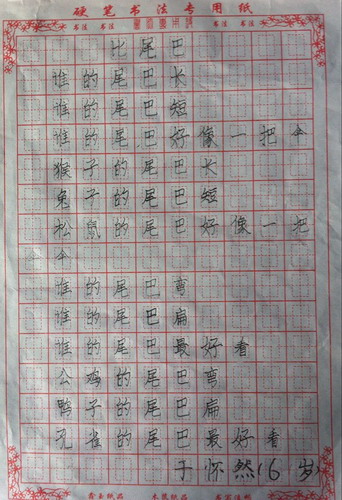 硬笔书法专用纸
比尾巴
谁的尾巴长
谁的尾巴短
谁的尾巴好像一把伞
猴子的尾巴长
兔子的尾巴短
松鼠的尾巴好像一把
伞
谁的尾巴弯
谁的尾巴扁
谁的尾巴最好看
公鸡的尾巴弯
鸭子的尾巴扁
孔雀的尾巴最好看
于怀然(6岁)